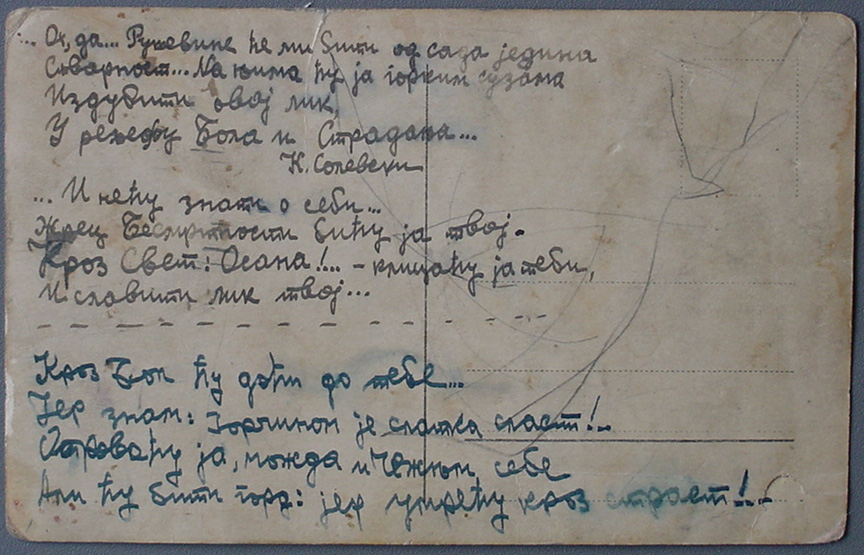 ... Ох, да... Рушевине ће ми бити од сада једина
Стварност... На њима ћу ја горким сузама
Издубити овај лик,
У рељефу Бола и Страдања...
К. Солевски
... И нећу знати о себи...
Жрец Бесмртности бићу ја твој.
Кроз Свет: Осана!... - клицаћу ја теби,
И славити лик твој...
Кроз Бол ћу доћи до тебе...
Јер знам: Горчином је слатка сласт!..
Отроваћу ја, можда и Чежњом себе
Али ћу бити горд: јер умрећу кроз страст!..